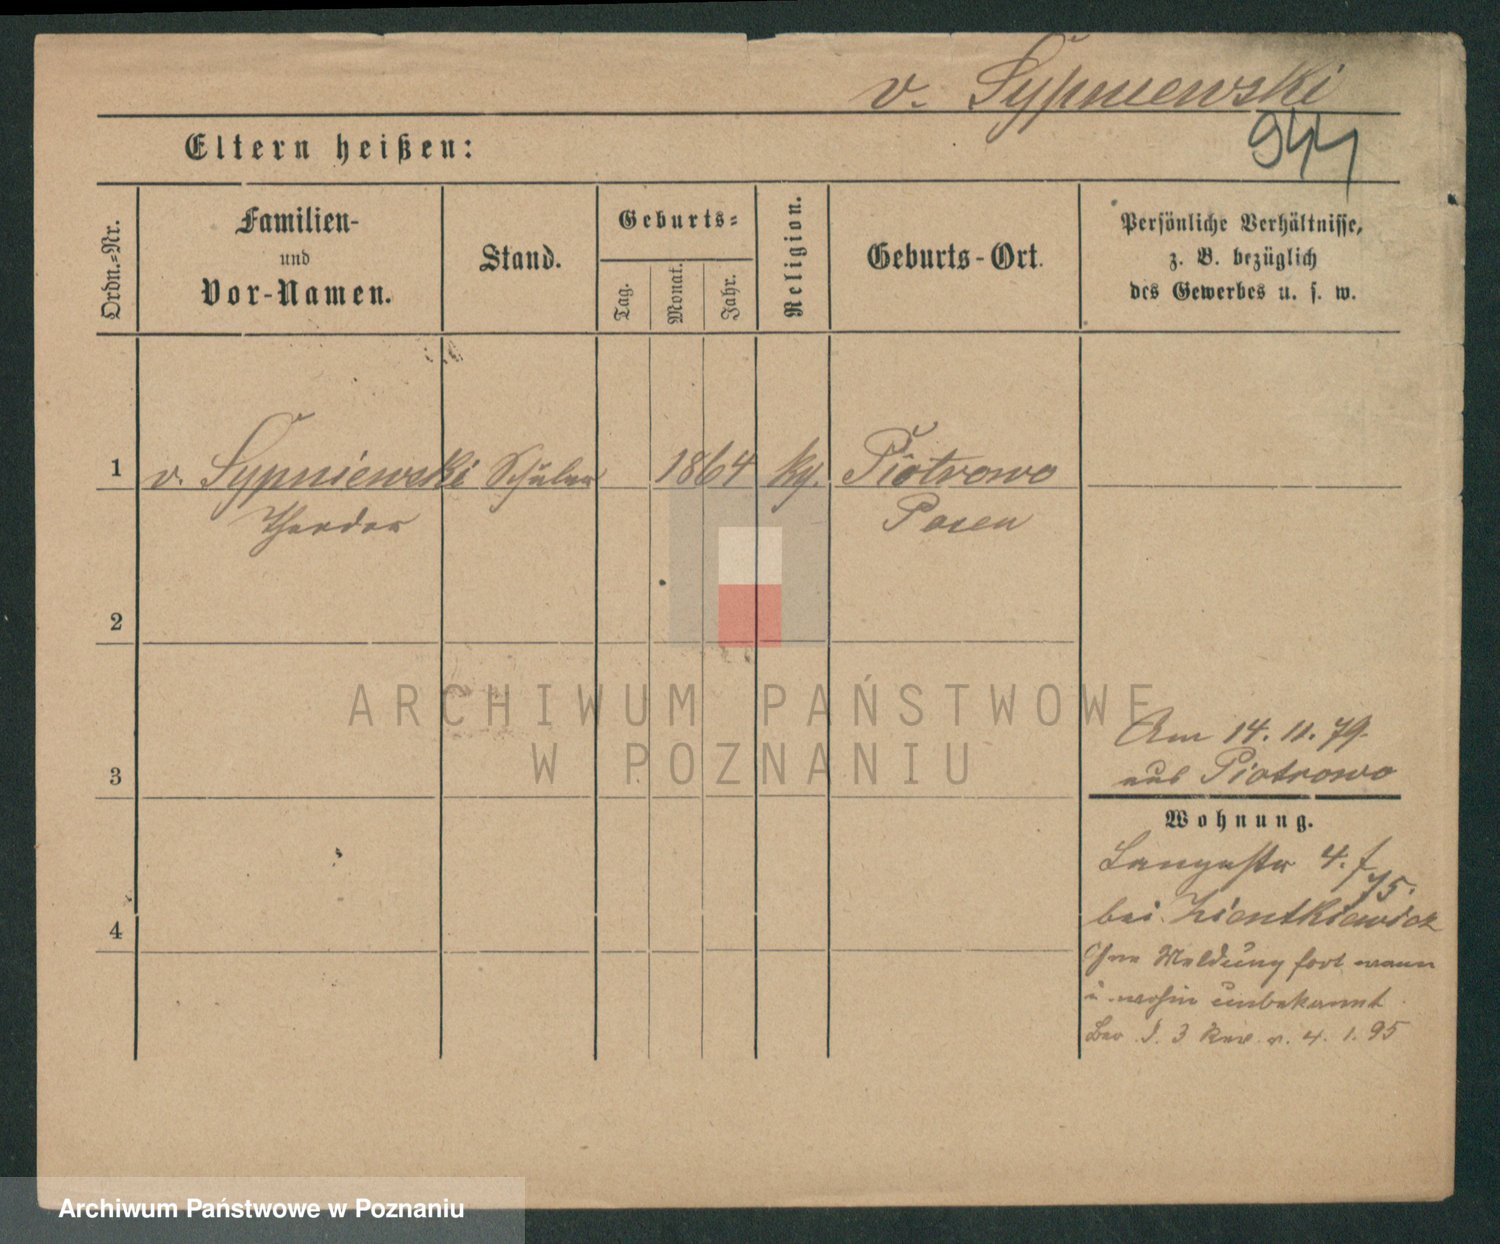 v. Sypniewski
944
Eltern heißen:
Ordn.=Nr.
Familien-
und
Vor-Namen.
Stand.
Geburts=
Tag.
Monat.
Jahr.
Religion.
Geburts-Ort.
Persönliche Verhältnisse,
z. B. bezüglich
des Gewerbes u. s. w.
1 v. Sypniewski Schüler 1864 kg. Piotrowo
Theodor Posen
2
3
4
Am 14. 11. 79.
aus Piotrowo
Wohnung.
Langestr 4. f
75.
bei Zientkiewicz
Ohne Meldung fort wann
u wohin unbekannt
3 Rev. v. 4. 1. 95
ARCHIWUM PAŃSTWOWE
W POZNANIU
Archiwum Państwowe w Poznaniu